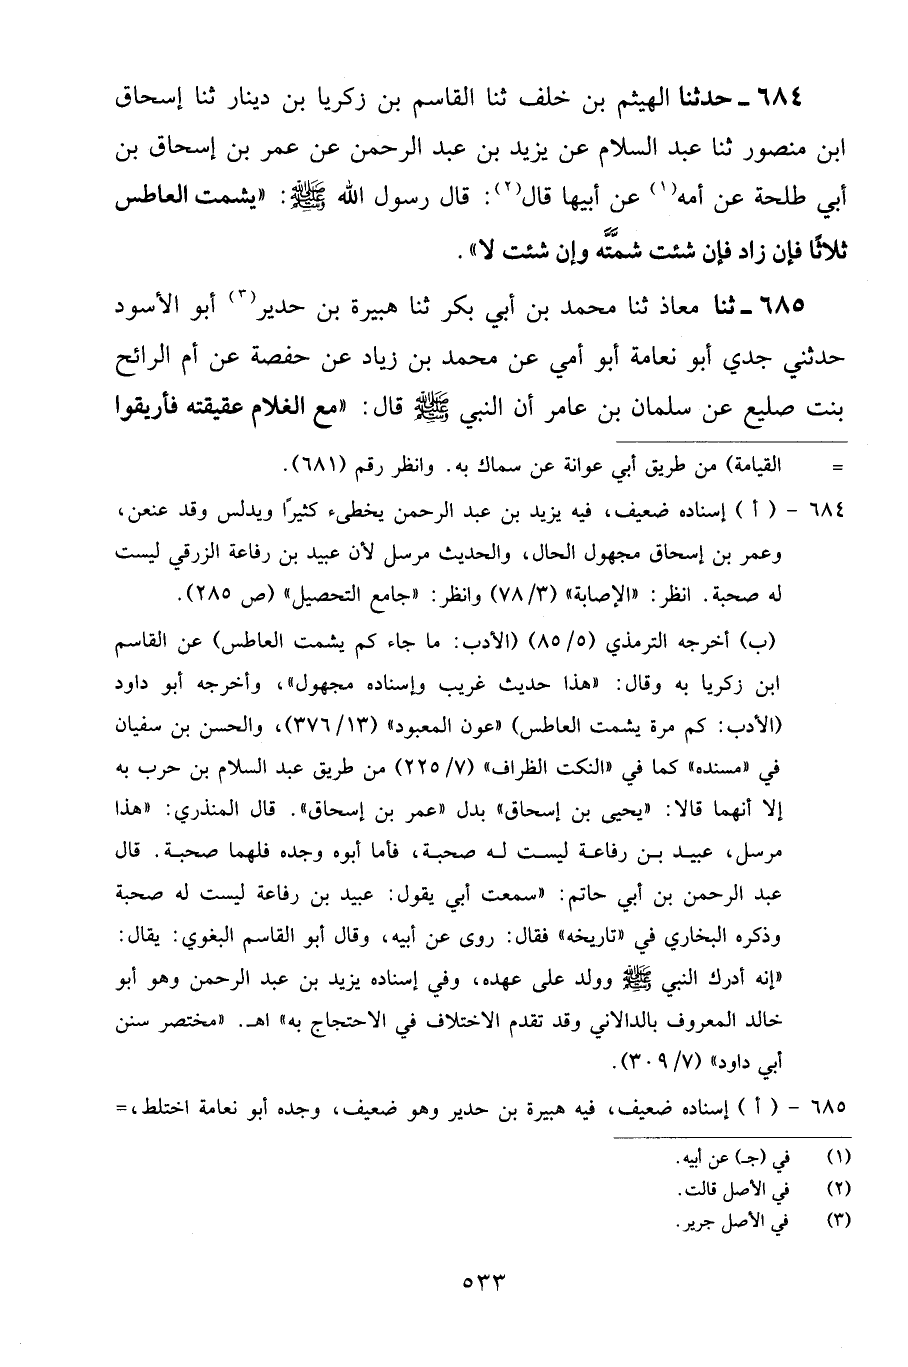 ٦٨٤ ـ حدثنا الهيثم بن خلف ثنا القاسم بن زكريا بن دينار ثنا إسحاق
ابن منصور ثنا عبد السلام عن يزيد بن عبد الرحمن عن عمر بن إسحاق بن
أبي طلحة عن أمه(١) عن أبيها قال(٢): قال رسول الله ﷺ: «يشمت العاطس
ثلاثًا فإن زاد فإن شئت شمتَّه وإن شئت لا».
٦٨٥ ـ ثنا معاذ ثنا محمد بن أبي بكر ثنا هبيرة بن حدير(٣) أبو الأسود
حدثني جدي أبو نعامة أبو أمي عن محمد بن زياد عن حفصة عن أم الرائح
بنت صليع عن سلمان بن عامر أن النبي ﷺ قال: «مع الغلام عقيقته فأريقوا
= القيامة) من طريق أبي عوانة عن سماك به. وانظر رقم (٦٨١).
٦٨٤ - (أ) إسناده ضعيف، فيه يزيد بن عبد الرحمن يخطىء كثيرًا ويدلس وقد عنعن،
وعمر بن إسحاق مجهول الحال، والحديث مرسل لأن عبيد بن رفاعة الزرقي ليست
له صحبة. انظر: «الإصابة» (٧٨/٣) وانظر: «جامع التحصيل» (ص ٢٨٥).
(ب) أخرجه الترمذي (٨٥/٥) (الأدب: ما جاء كم يشمت العاطس) عن القاسم
ابن زكريا به وقال: «هذا حديث غريب وإسناده مجهول»، وأخرجه أبو داود
(الأدب: كم مرة يشمت العاطس) «عون المعبود» (٣٧٦/١٣)، والحسن بن سفيان
في «مسنده» كما في «النكت الظراف» (٢٢٥/٧) من طريق عبد السلام بن حرب به
إلا أنهما قالا: «يحيى بن إسحاق» بدل «عمر بن إسحاق». قال المنذري: «هذا
مرسل، عبيد بن رفاعة ليست له صحبة، فأما أبوه وجده فلهما صحبة. قال
عبد الرحمن بن أبي حاتم: «سمعت أبي يقول: عبيد بن رفاعة ليست له صحبة
وذكره البخاري في «تاريخه» فقال: روى عن أبيه، وقال أبو القاسم البغوي: يقال:
«إنه أدرك النبي ﷺ وولد على عهده، وفي إسناده يزيد بن عبد الرحمن وهو أبو
خالد المعروف بالدالاني وقد تقدم الاختلاف في الاحتجاج به» اهـ. «مختصر سنن
أبي داود» (٣٠٩/٧).
٦٨٥ - (أ) إسناده ضعيف، فيه هبيرة بن حدير وهو ضعيف، وجده أبو نعامة اختلط، =
(١) في (جـ) عن أبيه.
(٢) في الأصل قالت.
(٣) في الأصل جرير.
٥٣٣